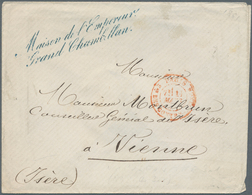 Maison de l'Empereur
Grand Chambellan.
Monsieur
Monsieur
Conseiller Général de l'Isère
à Vienne
(Isère)